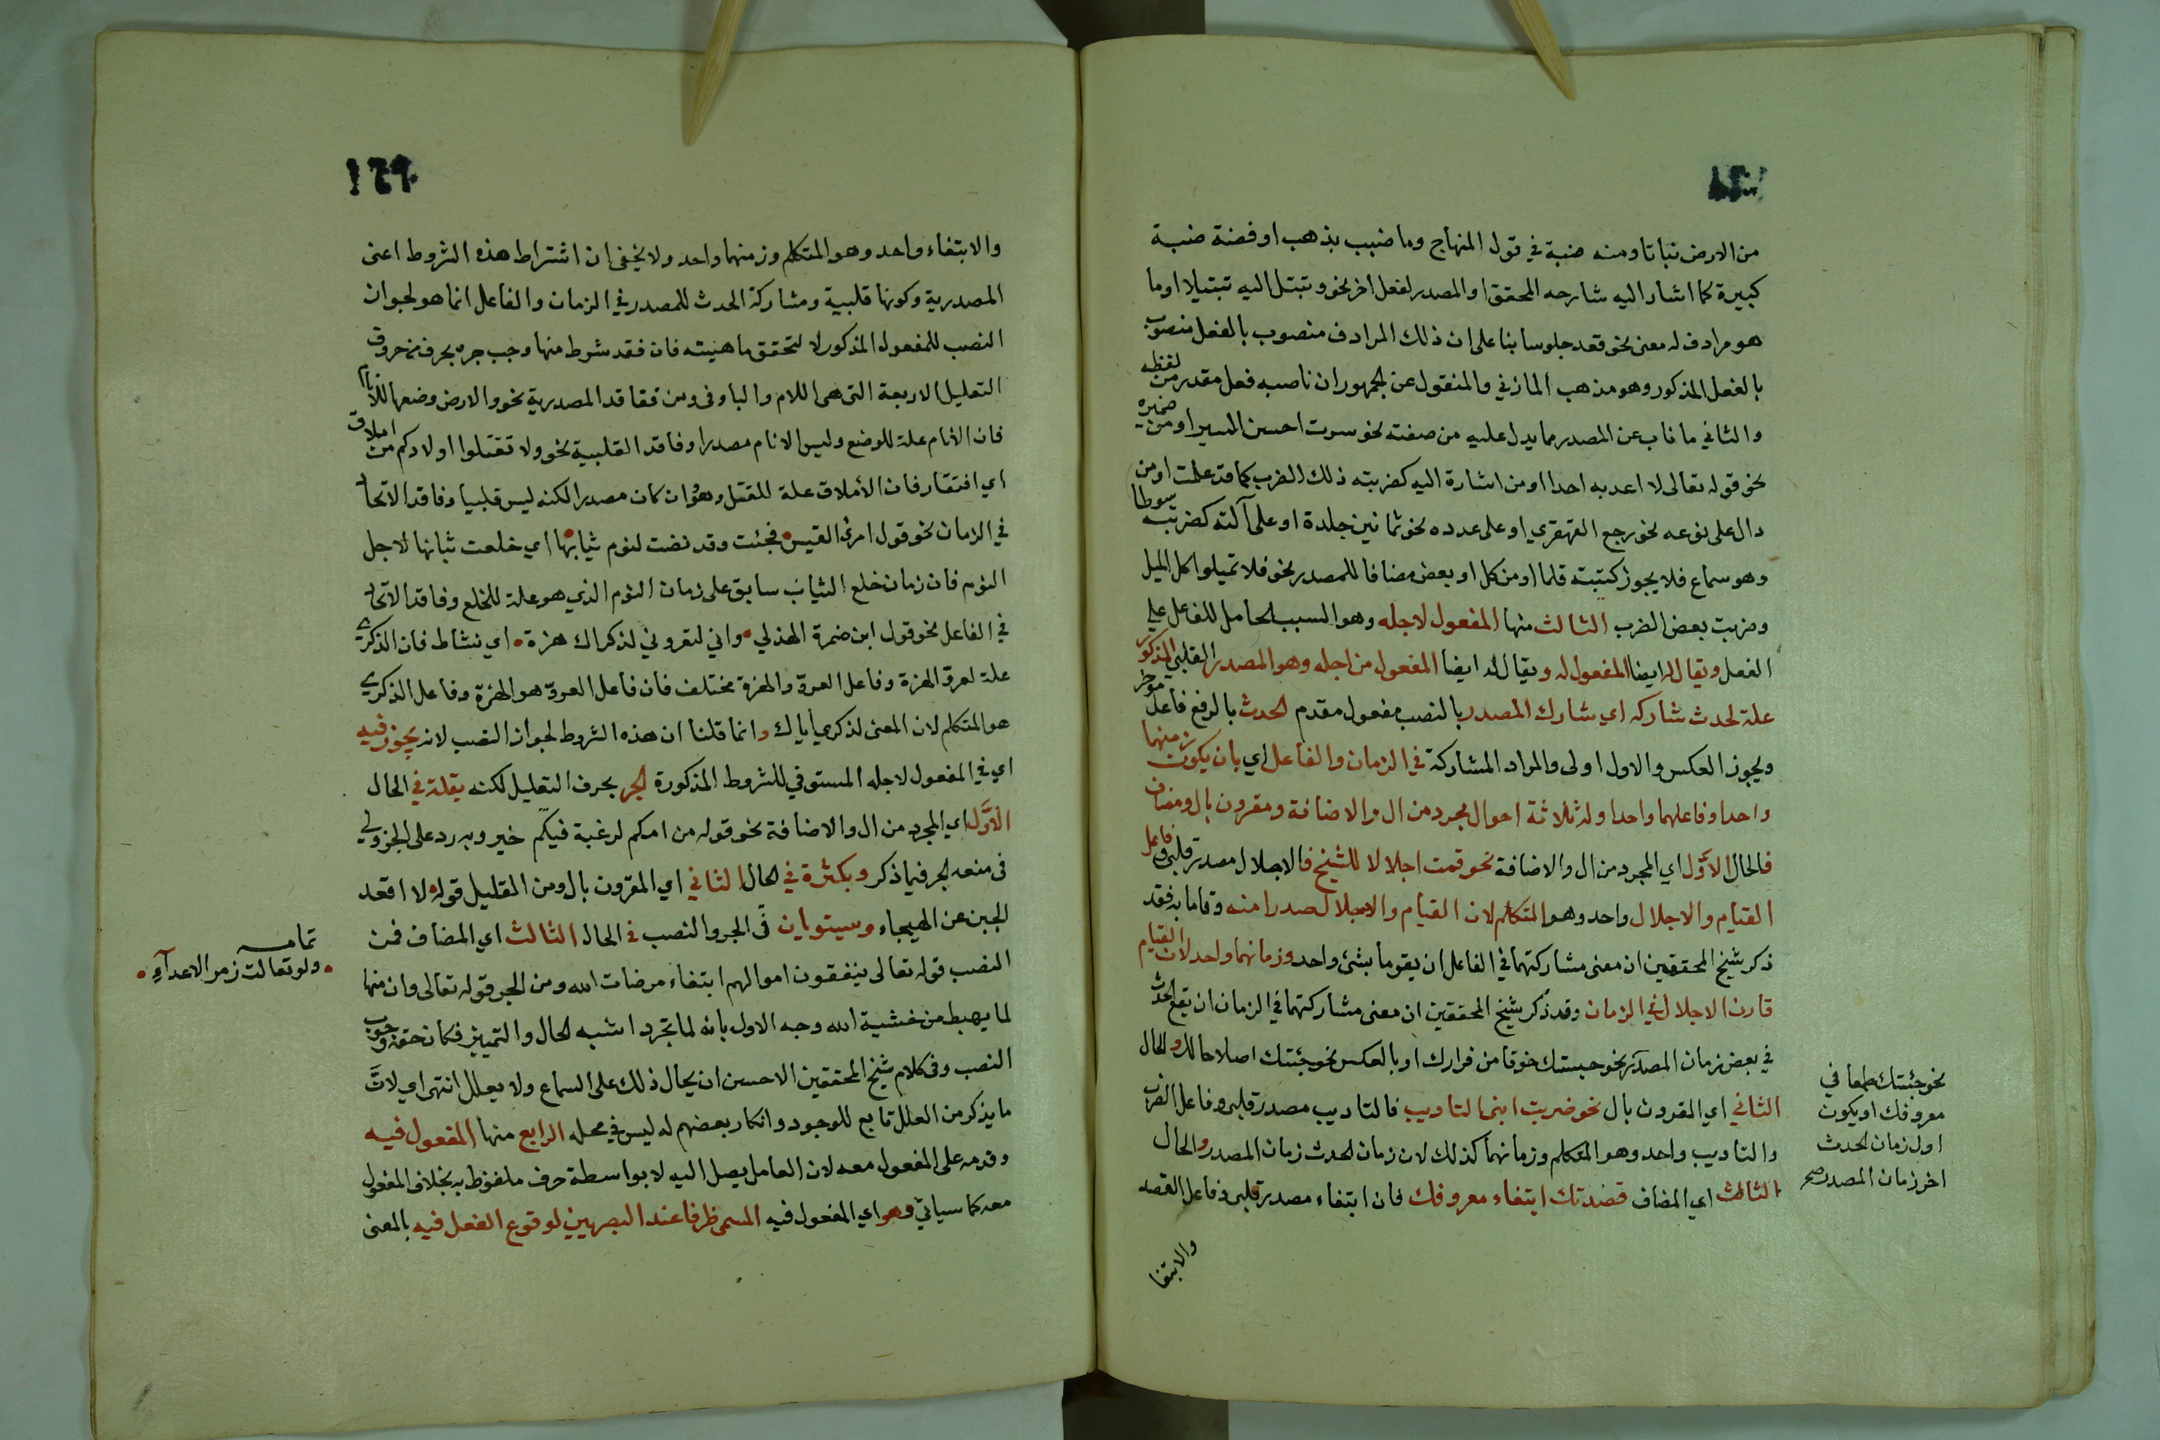 من الارض نباتا ومنه ضبة في قول المنهاج وما ضبب بذهب او فضة ضبة
كبيرة كما اشار اليه شارحه المحقق او المصدر لفعل اخر نحو وتبتل اليه تبتيلا او ما
هو مرادف له معنى نحو قعد جلوسا بنا على ان ذلك المرادف منصوب بالفعل منصوب
بالفعل المذكور وهو مذهب المازني والمنقول عن الجمهور ان ناصبه فعل مقدر من لفظه
والثاني ما ناب عن المصدر مما يدل عليه من صفته نحو سرت احسن السير او من ضميره
نحو قوله تعالى لا اعذبه احدا او من اشارة اليه كضربته ذلك الضرب كما قد علمت او من
دال على نوعه نحو رجع القهقري او على عدده نحو ثمانين جلدة او على آلته كضربته سوطا
وهو سماع فلا يجوز كتبته قلما او من كل او بعض مضافا للمصدر نحو فلا تميلوا كل الميل
وضربت بعض الضرب الثالث منها المفعول لاجله وهو السبب الحامل للفاعل علي
الفعل ويقال له ايضا المفعول له ويقال له ايضا المفعول من اجله وهو المصدر القلبي المذكور
علة لحدث شاركه اي شارك المصدر بالنصب مفعول مقدم الحدث بالرفع فاعل موخر
ويجوز العكس والاول اولى والمراد المشاركة في الزمان والفاعل اي بان يكون زمنهما
واحدا وفاعلهما واحدا وله ثلاثة احوال مجرد من ال والاضافة ومقرون بال ومضاف
فالحال الاوّل اي المجرد من ال والاضافة نحو قمت اجلالا للشيخ فالاجلال مصدر قلبى وفاعل
القيام والاجلال واحد وهو المتكلم لان القيام والاجلال صدرا منه وقاما به فقد
ذكر شيخ المحققين ان معنى مشاركتهما في الفاعل ان يقوما بشئ واحد وزمانهما واحد لان القيام
قارن الاجلال في الزمان وقد ذكر شيخ المحققين ان معنى مشاركتهما في الزمان ان يقع الحدث
في بعض زمان المصدر نحو حبستك خوفا من فرارك او بالعكس نحو جئتك اصلاحا لك والحال
الثاني اي المقرون بال نحو ضربت ابني التاديب فالتاديب مصدر قلبى وفاعل الضرب
والتاديب واحد وهو المتكلم وزمانهما كذلك لان زمان الحدث زمان المصدر والحال
الثالث اي المضاف قصدتك ابتغاء معروفك فان ابتغاء مصدر قلبى وفاعل القصد
والابتغا
نحو جئتك طمعا في
معروفك او يكون
اول زمان الحدث
اخر زمان المصدر صح
١٤٩
والابتغاء واحد وهو المتكلم وزمنهما واحد ولا يخفى ان اشتراط هذه الشروط اعنى
المصدرية وكونها قلبية ومشاركة الحدث للمصدر في الزمان والفاعل انما هو لجواز
النصب للمفعول المذكور لا لتحقق ماهيته فان فقد شرط منها وجب جره بحرف من حروف
التعليل الاربعة التى هى اللام والبا وفى ومن ففاقد المصدرية نحو والارض وضعها للانام
فان الانام علة للوضع وليس الانام مصدرا وفاقد القلبية نحو ولا تقتلوا اولادكم من املاق
اي افتقار فان الأملاق علة للقتل وهو وان كان مصدرا لكنه ليس قلبيا وفاقد الاتحاد
في الزمان نحو قول امرئ القيس فجئت وقد نضت لنوم ثيابها اي خلعت ثيابها لاجل
النوم فان زمان خلع الثياب سابق على زمان النوم الذي هو علة للخلع وفاقد الاتحاد
في الفاعل نحو قول ابن ضمرة الهذلي واني لتعروني لذكراك هزة اي نشاط فان الذكرى
علة لعرو الهزة وفاعل العروّ والهزة مختلف فان فاعل العروّ هو الهزة وفاعل الذكرى
هو المتكلم لان المعنى لذكري اياك وانما قلنا ان هذه الشروط لجواز النصب لانه يجوز فيه
اي في المفعول لاجله المستوفي للشروط المذكورة الجر بحرف التعليل لكنه بقلة في الحال
الاوّل اي المجرد من ال والاضافة نحو قوله من امكم لرغبة فيكم خير وبه رد على الجزولي
فى منعه الجر فيما ذكر وبكثرة في الحال الثاني اي المقرون بال ومن القليل قوله لا اقعد
الجبن عن الهيجاء ويستويان في الجر والنصب في الحال الثالث اي المضاف فمن
النصب قوله تعالى ينفقون اموالهم ابتغاء مرضات الله ومن الجر قوله تعالى وان منها
لما يهبط من خشية الله وجه الاول بانه لما تجرد اشبه الحال والتمييز فكان حقه وجوب
النصب وفى كلام شيخ المحققين الاحسن ان يحال ذلك على السماع ولا يعلل انتهى اي لانّ
ما يذكر من العلل تابع للوجود وانكار بعضهم له ليس في محله الرابع منها المفعول فيه
وقدمه على المفعول معه لان العامل يصل اليه لا بواسطة حرف ملفوظ به بخلاف المفعول
معه كما سياتي وهو اي المفعول فيه المسمى ظرفا عند البصريين لوقوع الفعل فيه بالمعنى
تمامه
ولو تعالت زمر الاعدآء